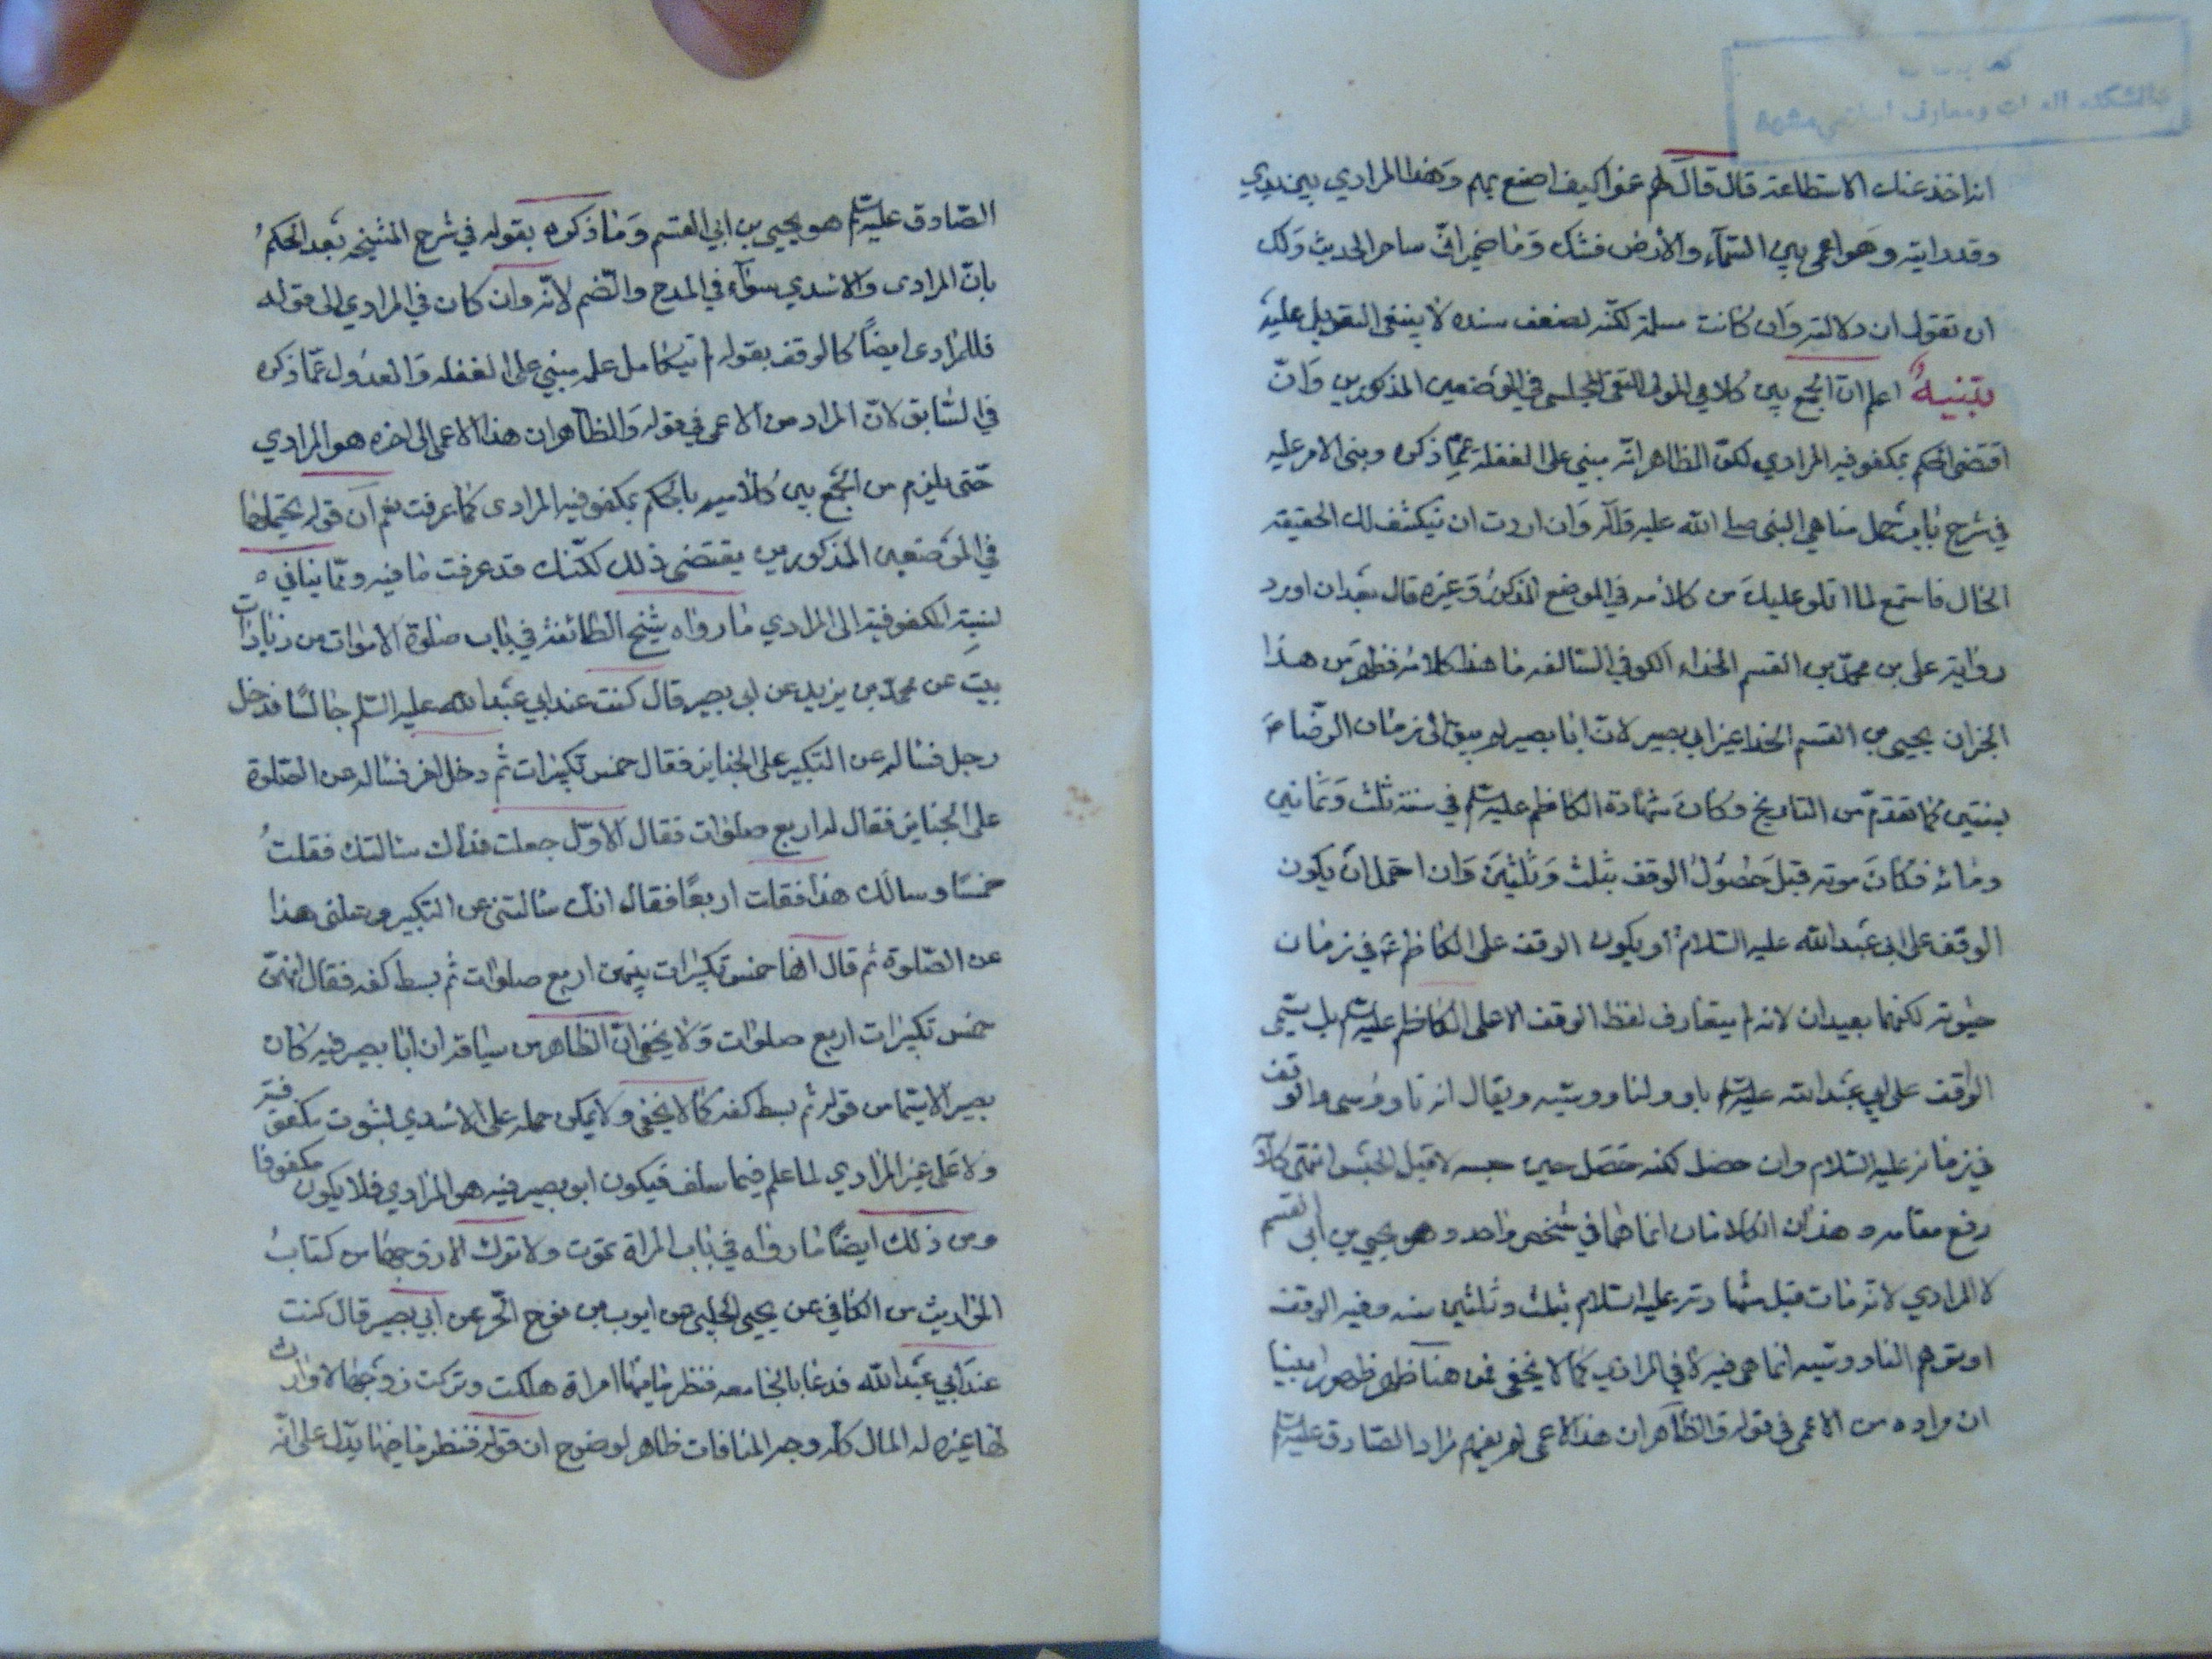 انا خذ عنك الاستطاعة قال قال لهم عفوا كيف اصنع بهم وهذا المرادي بين يدي
وقد رايته وهو اعمى بين السماء والأرض فشك وما ضميرانه ساحر الحديث ولك
ان تقول ان دلالته وان كانت مسلمة لكنه لضعف سنده لا ينبغي التعويل عليه
تنبيه اعلم ان الجمع بين كلامي المولى التقي المجلسي في الموضعين المذكورين وان
اقتضى الحكم بمكفوفية المرادي لكن الظاهر انه مبني على الغفلة عما ذكره وبنى الامر عليه
في شرح باب جمل مناهي النبي صلى الله عليه وآله وان اردت ان ينكشف لك الحقيقة
الحال فاستمع لما اتلو عليك من كلامه في الموضع المذكور وغيره قال بعد ان اورد
رواية علي بن محمد بن القسم الحذاء الكوفي السالفة ما هذا كلامه فظهر من هذا
الخبر ان يحيى بن القسم الحذا غير ابي بصير لان ابا بصير لم يبق الى زمان الرضا ع
بسنتين كما تقدم من التاريخ وكان شهادة الكاظم عليه السلم في سنة ثلث وثمانين
ومائة فكان موته قبل حصول الوقف بثلث وثلثين وان احتمل ان يكون
الوقف على ابي عبد الله عليه السلام أو يكون الوقف على الكاظم ع في زمان
حيوته لكنهما بعيدان لانه لم يتعارف لفظ الوقف الا على الكاظم عليه السلم بل يسمى
الواقف على ابي عبد الله عليه السلم باوولنا ووسيه ويقال انه ناووسى والوقف
في زمانه عليه السلام وان حصل لكنه حصل حين حبسه لا قبل الحبس انتهى كلامه
رفع مقامه وهذان الكلامان انما هما في شخص واحد وهو يحيى بن ابي القسم
لا المرادي لانه مات قبل شهادته عليه السلام بثلث وثلثين سنه وفيه الوقف
او توهم الناووسيه انما هي فيه لا في المرادي كما لا يخفى فمن هنا ظهر ظهورا مبينا
ان مراده من الاعمى في قوله والظاهر ان هذا الاعمى لم يفهم مراد الصادق عليه السلم
الصادق عليه السلم هو يحيى بن ابي القسم وما ذكره بقوله في شرح المشيخه بعد الحكم
بان المرادى والاسدي سواء في المدح والذم لانه وان كان في المرادي الى قوله
فللمرادى ايضا كالوقف بقوله لم يتكامل علمه مبني على الغفله والعدول عما ذكره
في السابق لان المراد من الاعمى في قوله والظاهر ان هذا الاعمى الى اخره هو المرادي
حتى يلزم من الجمع بين كلاميه بالحكم بمكفوفية المرادى كما عرفت نعم ان قوله يحتملهما
في الموضعين المذكورين يقتضى ذلك لكنك قد عرفت ما فيه ومما ينافي
لنسبة المكفوفية الى المرادي ما رواه شيخ الطائفة في باب صلوة الأموات من زيادات
يب عن محمد بن يزيد عن ابى بصير قال كنت عند ابي عبد الله عليه السلم جالسا فدخل
رجل فساله عن التكبير على الجنايز فقال خمس تكبيرات ثم دخل اخر فساله عن الصلوة
على الجنايز فقال له اربع صلوات فقال الأول جعلت فداك سالتك فقلت
خمسا وسالك هذا فقلت اربعا فقال انك سالتني عن التكبير وسئلني هذا
عن الصلوة ثم قال انها خمس تكبيرات بينهن اربع صلوات ثم بسط كفه فقال انهن
خمس تكبيرات اربع صلوات ولا يخفى ان الظاهر من سياقه ان ابا بصير فيه كان
بصيرا لا سيما من قوله ثم بسط كفه كما لا يخفى ولا يمكن حمله على الاسدي لثبوت مكفوفيته
ولا على غير المرادي لما علم فيما سلف فيكون ابو بصير فيه هو المرادي فلا يكون مكفوفا
ومن ذلك ايضا ما رواه في باب المراة تموت ولا تترك الا زوجها من كتاب
المواريث من الكافي عن يحيى الحلبى عن ايوب بن نوح الحر عن ابي بصير قال كنت
عند ابي عبد الله فدعا بالجامعه فنظر فيها امراة هلكت وتركت زوجها لا وارث
لها غيره له المال كله وجه المنافات ظاهر لوضوح ان قوله فنظر فيها يدل على انه